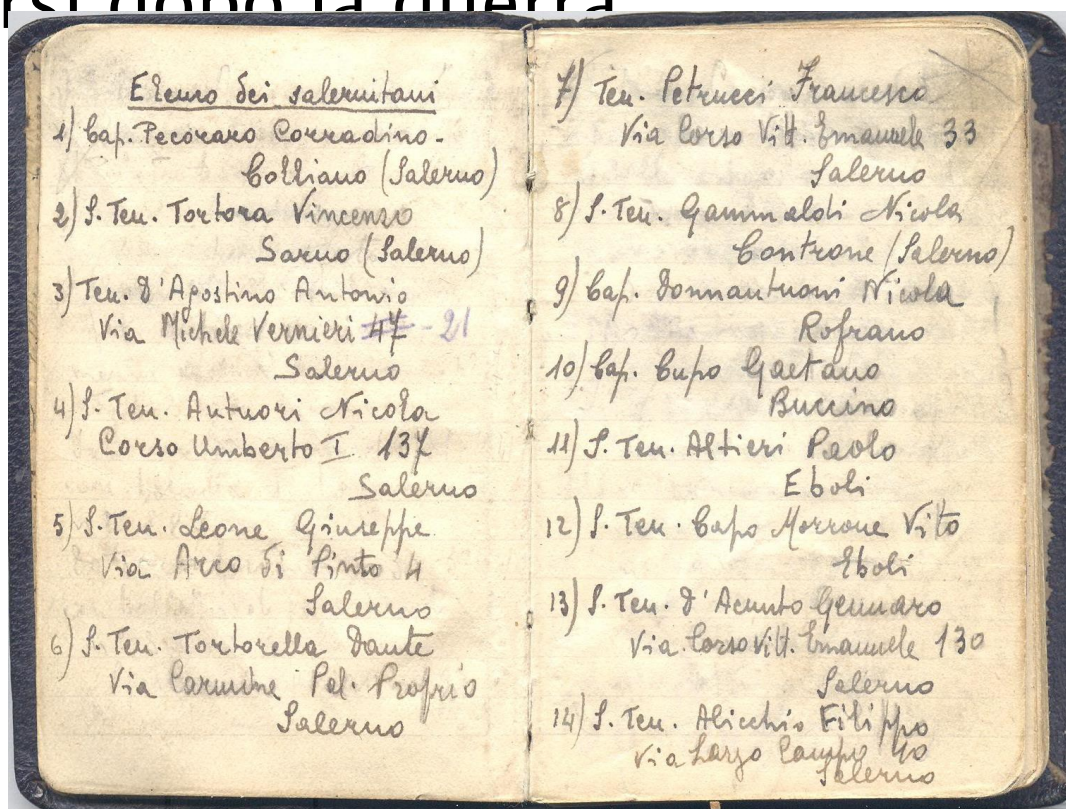 rsi dopo la guerra
Elenco dei salernitani
1) Cap. Pecoraro Corradino -
Colliano (Salerno)
2) S. Ten. Tortora Vincenzo
Sarno (Salerno)
3) Ten. D'Agostino Antonio
Via Michele Vernieri 47 - 21
Salerno
4) S. Ten. Antuori Nicola
Corso Umberto I 137
Salerno
5) S. Ten. Leone Giuseppe
Via Arco di Pinto 4
Salerno
6) S. Ten. Tortorella Dante
Via Carmine Pal. Profrio
Salerno
7) Ten. Petrucci Francesco
Via Corso Vitt. Emanuele 33
Salerno
8) S. Ten. Gammaldi Nicola
Controne (Salerno)
9) Cap. Donnantuoni Nicola
Rofrano
10) Cap. Cupo Gaetano
Buccino
11) S. Ten. Altieri Paolo
Eboli
12) S. Ten. Capo Morrone Vito
Eboli
13) S. Ten. D'Acunto Gennaro
Via Corso Vitt. Emanuele 130
Salerno
14) S. Ten. Alicchio Filippo
Via Largo Campo
Salerno